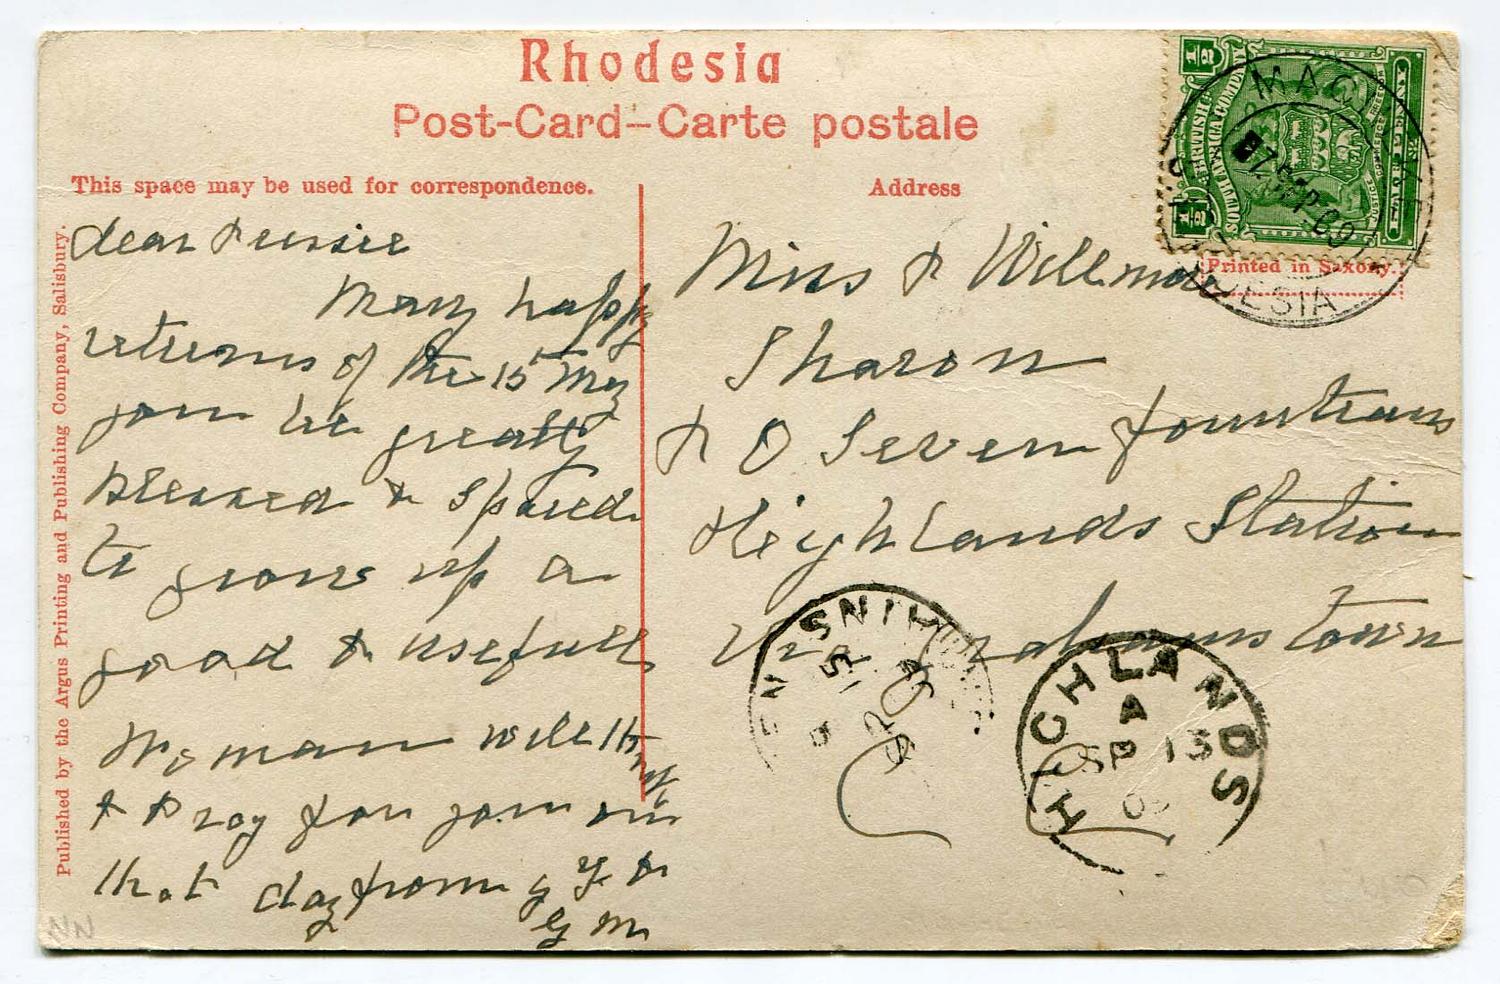 Rhodesia
Post-Card–Carte postale
This space may be used for correspondence.
Address
Published by the Argus Printing and Publishing Company, Salisbury.
Printed in Saxony.
dear
Many happy
returns of the 15th May
you be greatly
Blessed & Spared
to grow up a
good & usefull
Woman will th
& Pray for you on
that day from
Miss
Sharon
P O Seven fountains
Heighlands Station
Via Grahams town
BRITISH
SOUTH AFRICA COMPANY
JUSTICE COMMERCE FREEDOM
HALF PENNY
1/2
1/2
07 SEP 09
HIGHLANDS
A
SP 13
09
NN